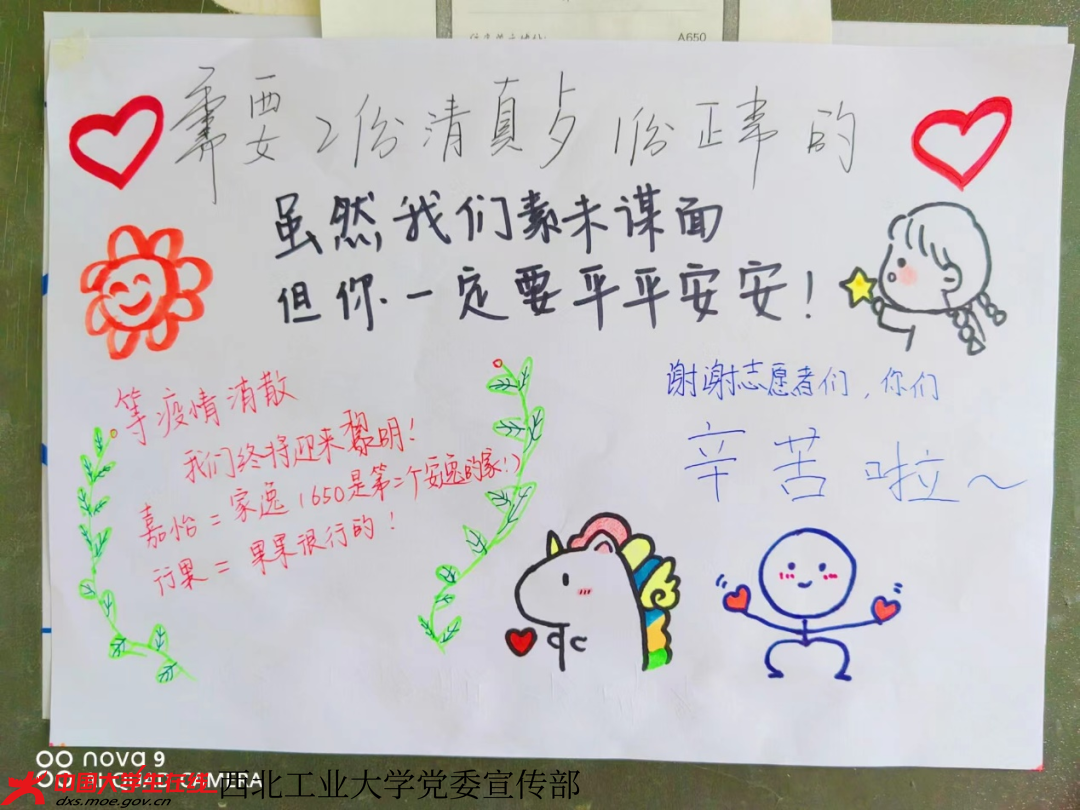 A650
需要2份清真与1份正常的
虽然我们素未谋面
但你一定要平平安安！
等疫情消散
我们终将迎来黎明！
嘉怡＝家逸（650是第二个安逸的家！）
行果＝果果很行的！
谢谢志愿者们，你们
辛苦啦～
nova 9
QUAD CAMERA
中国大学生在线
dxs.moe.gov.cn
西北工业大学党委宣传部